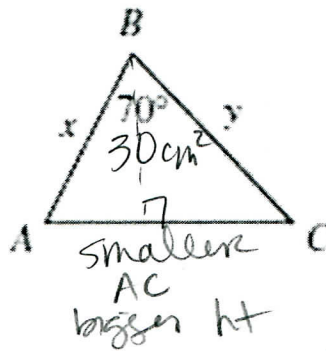 B
70°
x
y
30cm²
A
C
smaller
AC
bigger ht